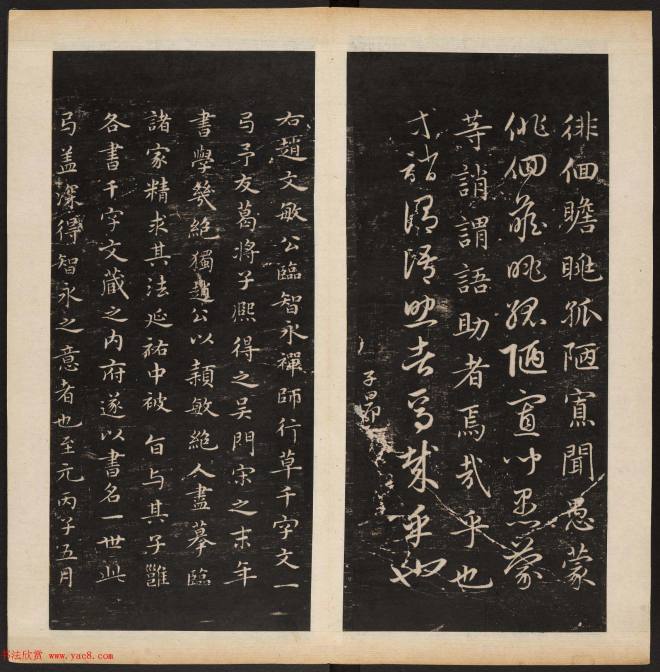 徘佪瞻眺孤陋寡聞愚蒙
徘佪瞻眺孤陋寡聞愚蒙
等誚謂語助者焉哉乎也
等誚謂語助者焉哉乎也
子昂
右趙文敏公臨智永禪師行草千字文一
弓予友葛將子熈得之吴門宋之末年
書學幾絶獨趙公以穎敏絶人盡摹臨
諸家精求其法延祐中被 旨与其子雝
各書千字文藏之内府遂以書名一世此
弓盖深得智永之意者也至元丙子五月
书法欣赏 www.yac8.com